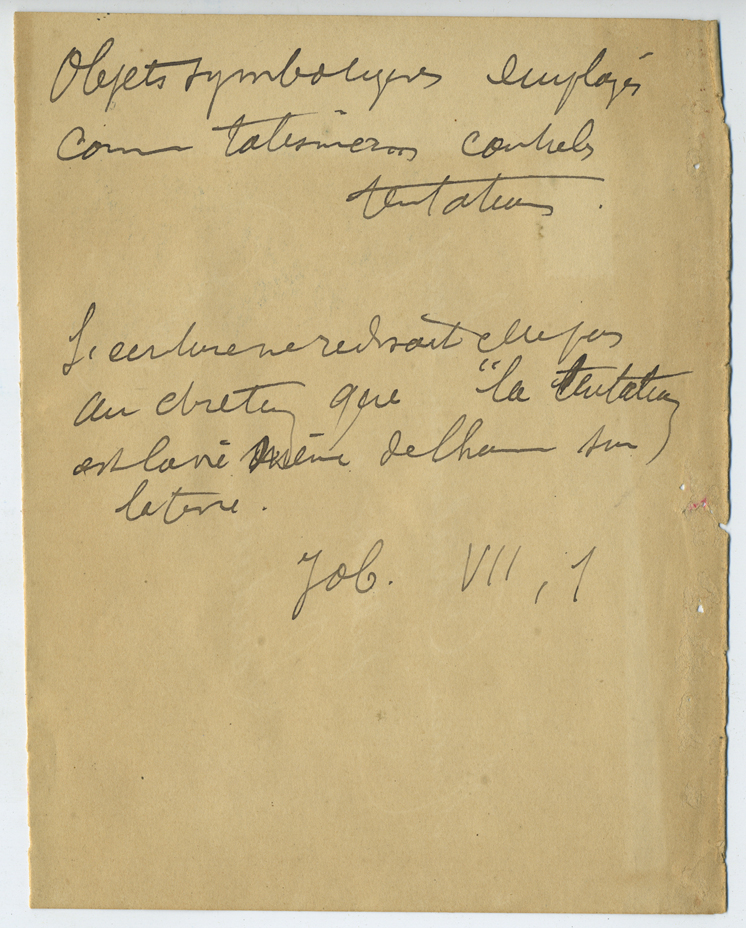 Objets symboliques employés
comme talismans contre les
tentations.
L'écriture ne redisait elle pas
au chretien que "la tentation
est la vie même de l'homme sur
la terre.
Job. VII, 1